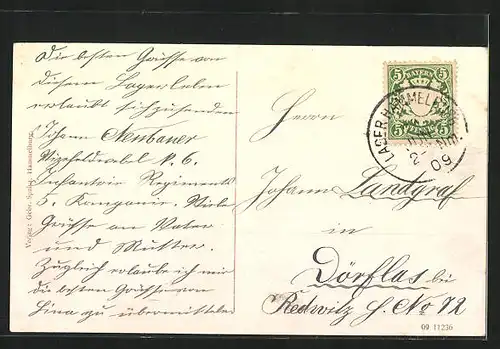 Die besten Grüsse von
diesem Lagerleben
erlaubt sich zu senden
Johann Neubauer
Vizefeldwebel K. 6.
Infanterie Regiments
5. Kompanie. Viele
Grüsse an Vater
und Mutter.
Zugleich erlaube ich mir
die besten Grüsse von
Lina zu übermitteln
Verlag: Gebr. Hammelburg
5 BAYERN 5
5 PFENNIG 5
LAGER HAMMELBURG
09
Herrn
Johann Landgraf
in
Dörflas bei
Redwitz H. No 72
09 11236